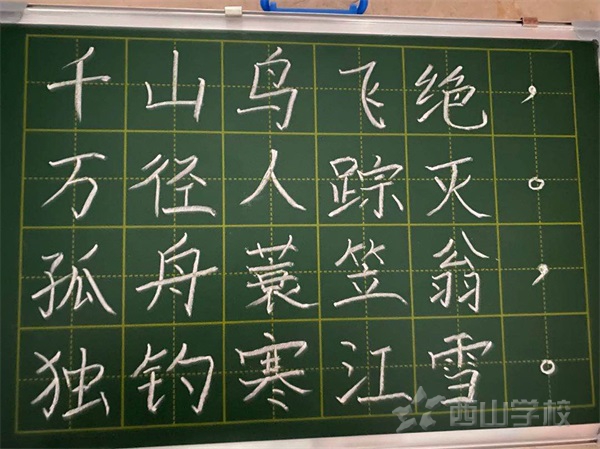 千山鸟飞绝，
万径人踪灭。
孤舟蓑笠翁，
独钓寒江雪。
西山学校